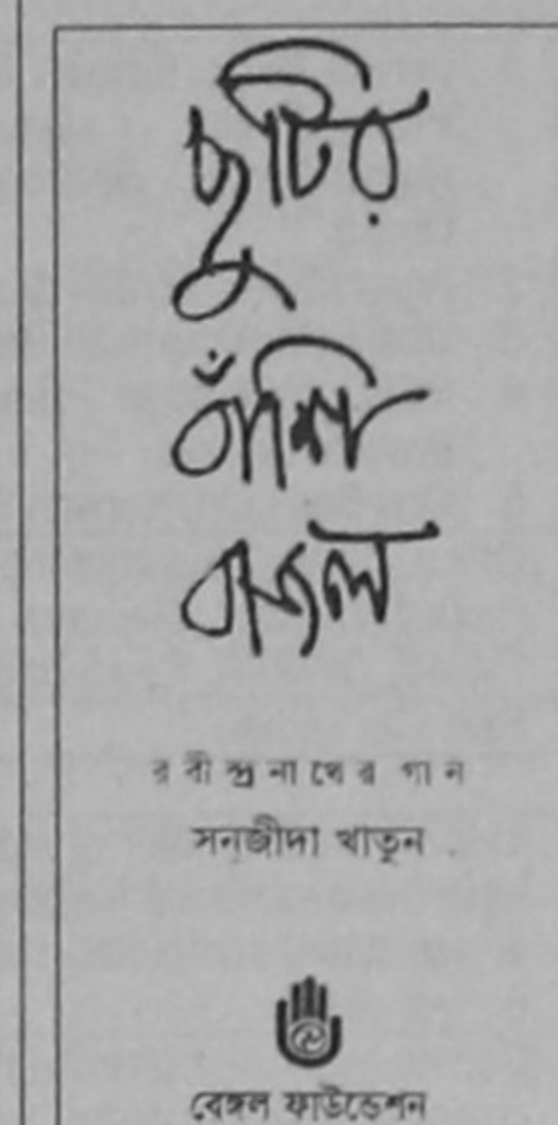 ছুটির
বাঁশি
বাজল
রবীন্দ্রনাথের গান
সন্‌জীদা খাতুন
বেঙ্গল ফাউন্ডেশন